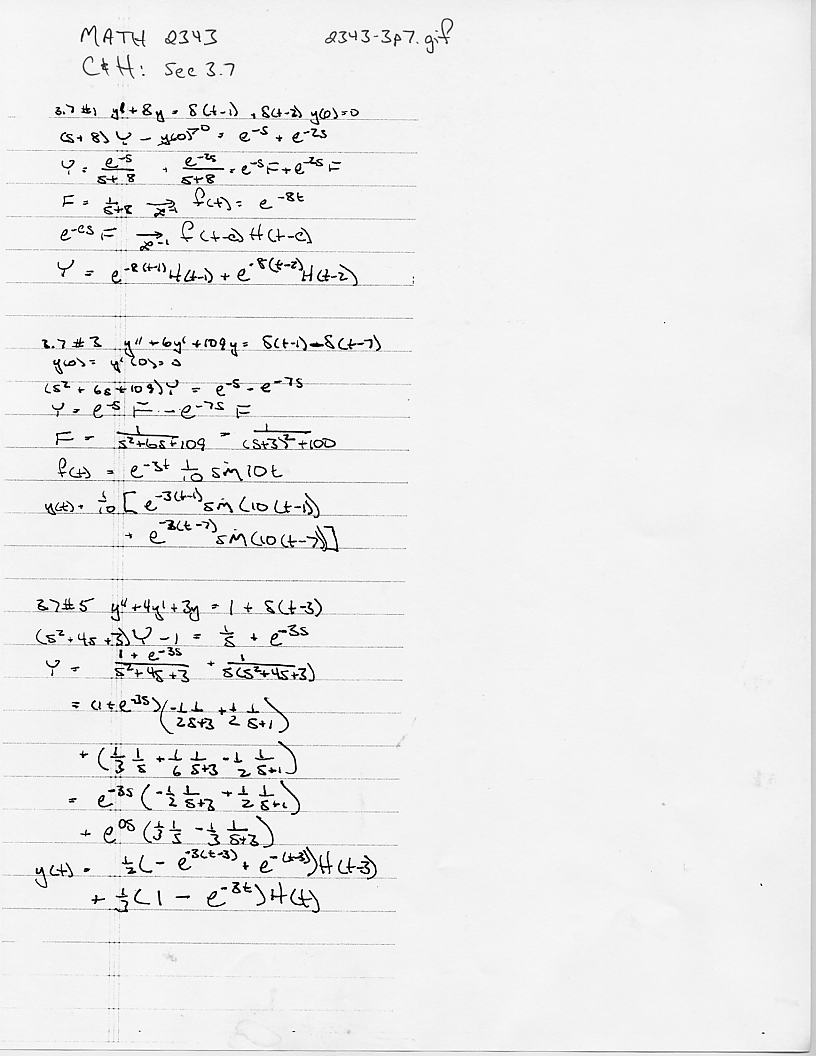 MATH 2343 2343-3p7.gif
C&H: Sec 3.7
3.7 #1 y' + 8y = δ(t-1) + δ(t-2) y(0)=0
(s+8)Y - y(0)→0 = e^-s + e^-2s
Y = e^-s/(s+8) + e^-2s/(s+8) = e^-s F + e^-2s F
F = 1/(s+8) →ℒ^-1 f(t) = e^-8t
e^-cs F →ℒ^-1 f(t-c) H(t-c)
Y = e^-8(t-1) H(t-1) + e^-8(t-2) H(t-2)
3.7 #3 y'' + 6y' + 109y = δ(t-1) - δ(t-7)
y(0) = y'(0) = 0
(s² + 6s + 109)Y = e^-s - e^-7s
Y = e^-s F - e^-7s F
F = 1/(s²+6s+109) = 1/((s+3)²+100)
f(t) = e^-3t 1/10 sin 10t
y(t) = 1/10 [ e^-3(t-1) sin(10(t-1))
+ e^-3(t-7) sin(10(t-7)) ]
3.7 #5 y'' + 4y' + 3y = 1 + δ(t-3)
(s² + 4s + 3)Y - 1 = 1/s + e^-3s
Y = (1 + e^-3s)/(s²+4s+3) + 1/(s(s²+4s+3))
= (1+e^-3s)(-1/2 1/(s+3) + 1/2 1/(s+1))
+ (1/3 1/s + 1/6 1/(s+3) - 1/2 1/(s+1))
= e^-3s (-1/2 1/(s+3) + 1/2 1/(s+1))
+ e^0s (1/3 1/s - 1/3 1/(s+3))
y(t) = 1/2 (- e^-3(t-3) + e^-(t-3)) H(t-3)
+ 1/3 (1 - e^-3t) H(t)